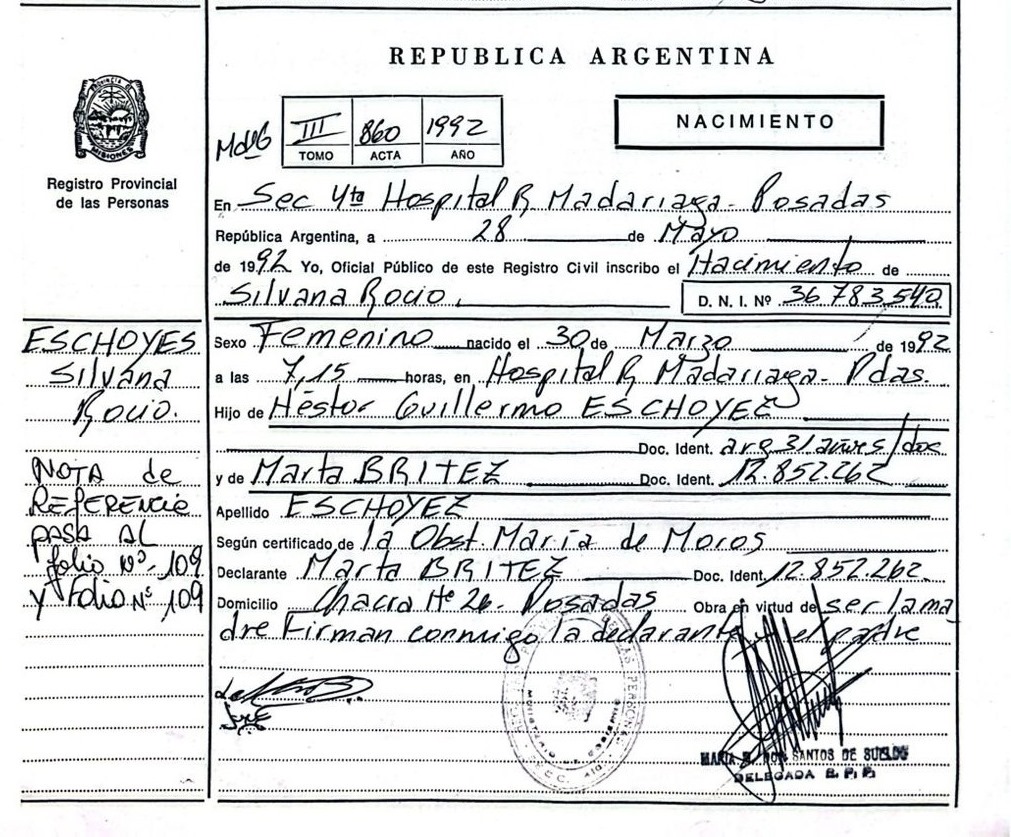 REPUBLICA ARGENTINA
PROVINCIA D
MISIONES
Registro Provincial
de las Personas
III 860 1992
TOMO ACTA AÑO
NACIMIENTO
En Sec 4ta Hospital R. Madariaga - Posadas
República Argentina, a 28 de Mayo
de 1992 Yo, Oficial Público de este Registro Civil inscribo el Nacimiento de
Silvana Rocio, D. N. I. Nº 36.783.540
ESCHOYES
Silvana
Rocio.
Sexo Femenino nacido el 30 de Marzo de 1992
a las 7,15 horas, en Hospital R. Madariaga - Pdas.
Hijo de Héstor Guillermo ESCHOYEZ
Doc. Ident. arg 31 años/doc
y de Marta BRITEZ Doc. Ident. 12.852.262
NOTA de
REFERENCIE
pasa AL
folio Nº 109
y Folio Nº 109
Apellido ESCHOYEZ
Según certificado de la Obst. María de Moros
Declarante Marta BRITEZ Doc. Ident. 12.852.262.
Domicilio Chacra Nº 26 - Posadas Obra en virtud de ser la ma
dre Firman conmigo la declarante y el padre
SANTOS DE SUELDO
DELEGADA R. P. P.